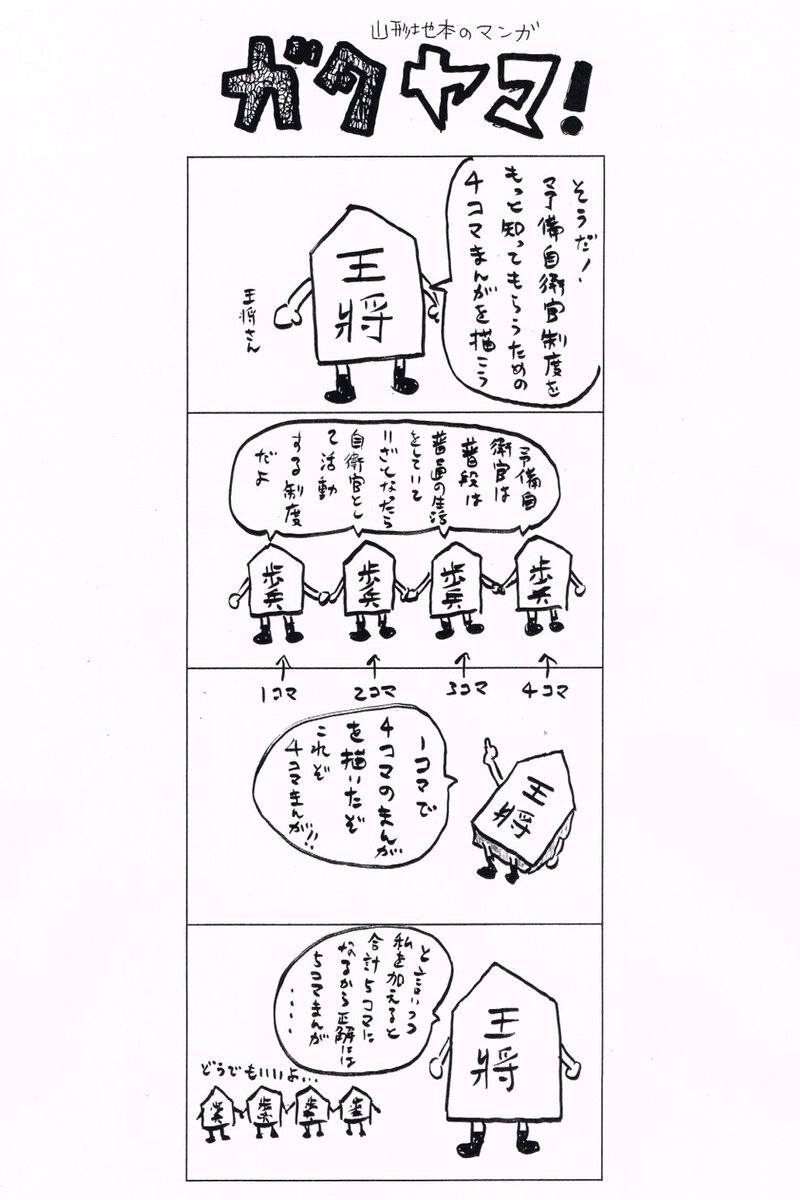 山形地本のマンガ
ガクヤマ!
そうだ!
予備自衛官制度を
もっと知ってもらうための
4コマまんがを描こう
王将
王将さん
予備自
衛官は
普段は
普通の生活
をしていて
いざとなったら
自衛官とし
て活動
する制度
だよ
歩兵
歩兵
歩兵
歩兵
1コマ
2コマ
3コマ
4コマ
1コマで
4コマのまんが
を描いたぞ
これぞ
4コマまんが!!
王将
と言いつつ
私を加えると
合計5コマに
なるから正解には
5コマまんが
・・・・
王将
どうでもいいよ…
歩兵
歩兵
歩兵
歩兵